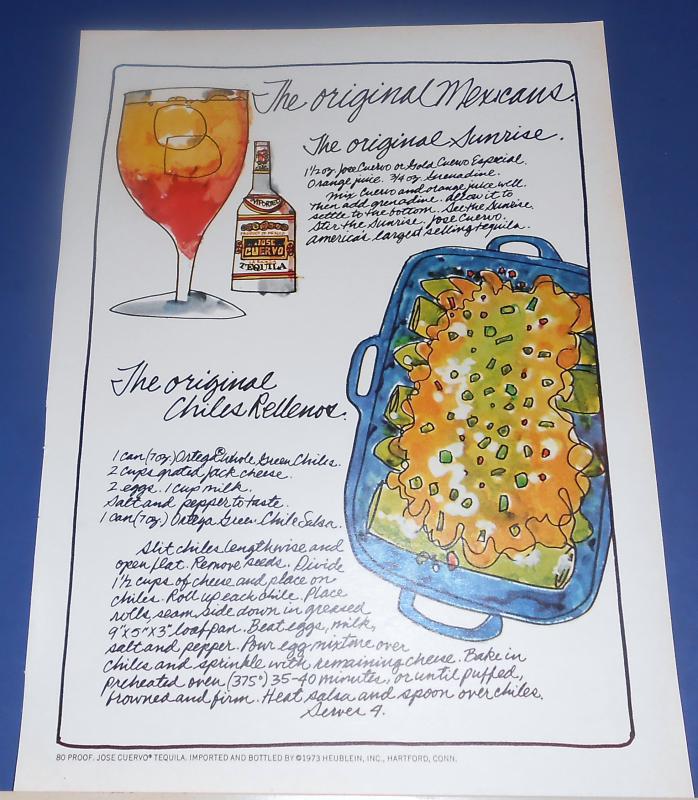 The original Mexicans.
The original Sunrise.
1½ oz. Jose Cuervo or Gold Cuervo Especial.
Orange juice. 3/4 oz. Grenadine.
Mix Cuervo and orange juice well.
Then add grenadine. Allow it to
settle to the bottom. See the Sunrise.
Stir the Sunrise. Jose Cuervo.
America's largest selling tequila.
IMPORTED
PRODUCT OF MEXICO
JOSE
CUERVO
TEQUILA
The original
Chiles Rellenos.
1 can (7oz.) Ortega Whole Green Chiles.
2 cups grated jack cheese.
2 eggs. 1 cup milk.
Salt and pepper to taste.
1 can (7oz.) Ortega Green Chile Salsa.
Slit chiles lengthwise and
open flat. Remove seeds. Divide
1½ cups of cheese and place on
chiles. Roll up each chile. Place
rolls, seam side down in greased
9"x5"x3" loaf pan. Beat eggs, milk,
salt and pepper. Pour egg mixture over
chiles and sprinkle with remaining cheese. Bake in
preheated oven (375°) 35-40 minutes, or until puffed,
browned and firm. Heat salsa and spoon over chiles.
Serves 4.
80 PROOF. JOSE CUERVO® TEQUILA. IMPORTED AND BOTTLED BY ©1973 HEUBLEIN, INC., HARTFORD, CONN.